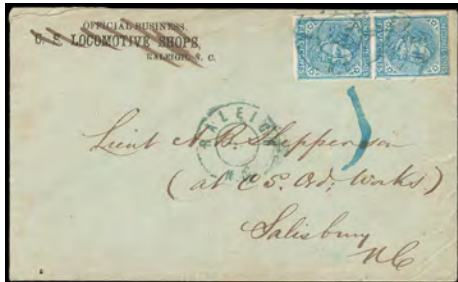 OFFICIAL BUSINESS.
C. S. LOCOMOTIVE SHOPS,
RALEIGH, N. C.
RALEIGH
N.C.
Lieut N. B. Shepperson
(at C S. Ord; Works)
Salisbury
NC